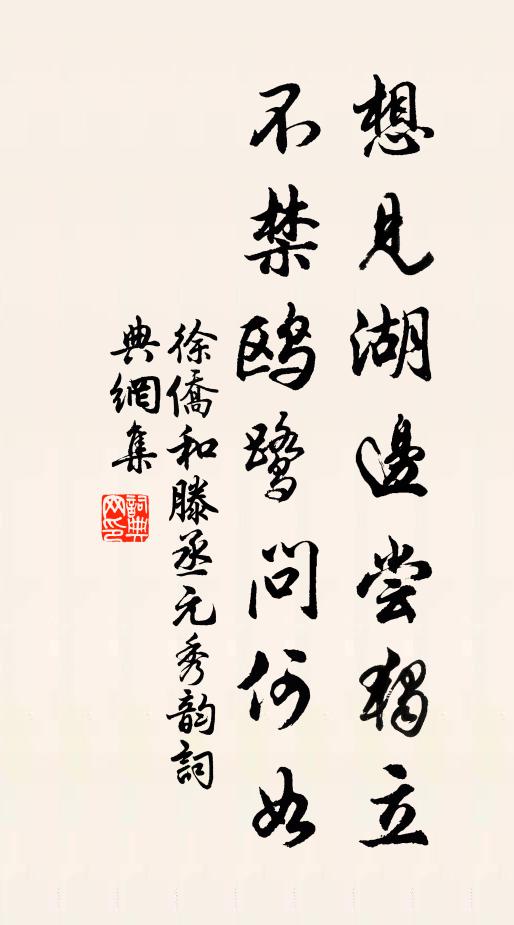 想見湖邊嘗獨立
不禁鸥鹭問何如
徐僑和滕丞元秀韵詞
典網集
詞典
网印